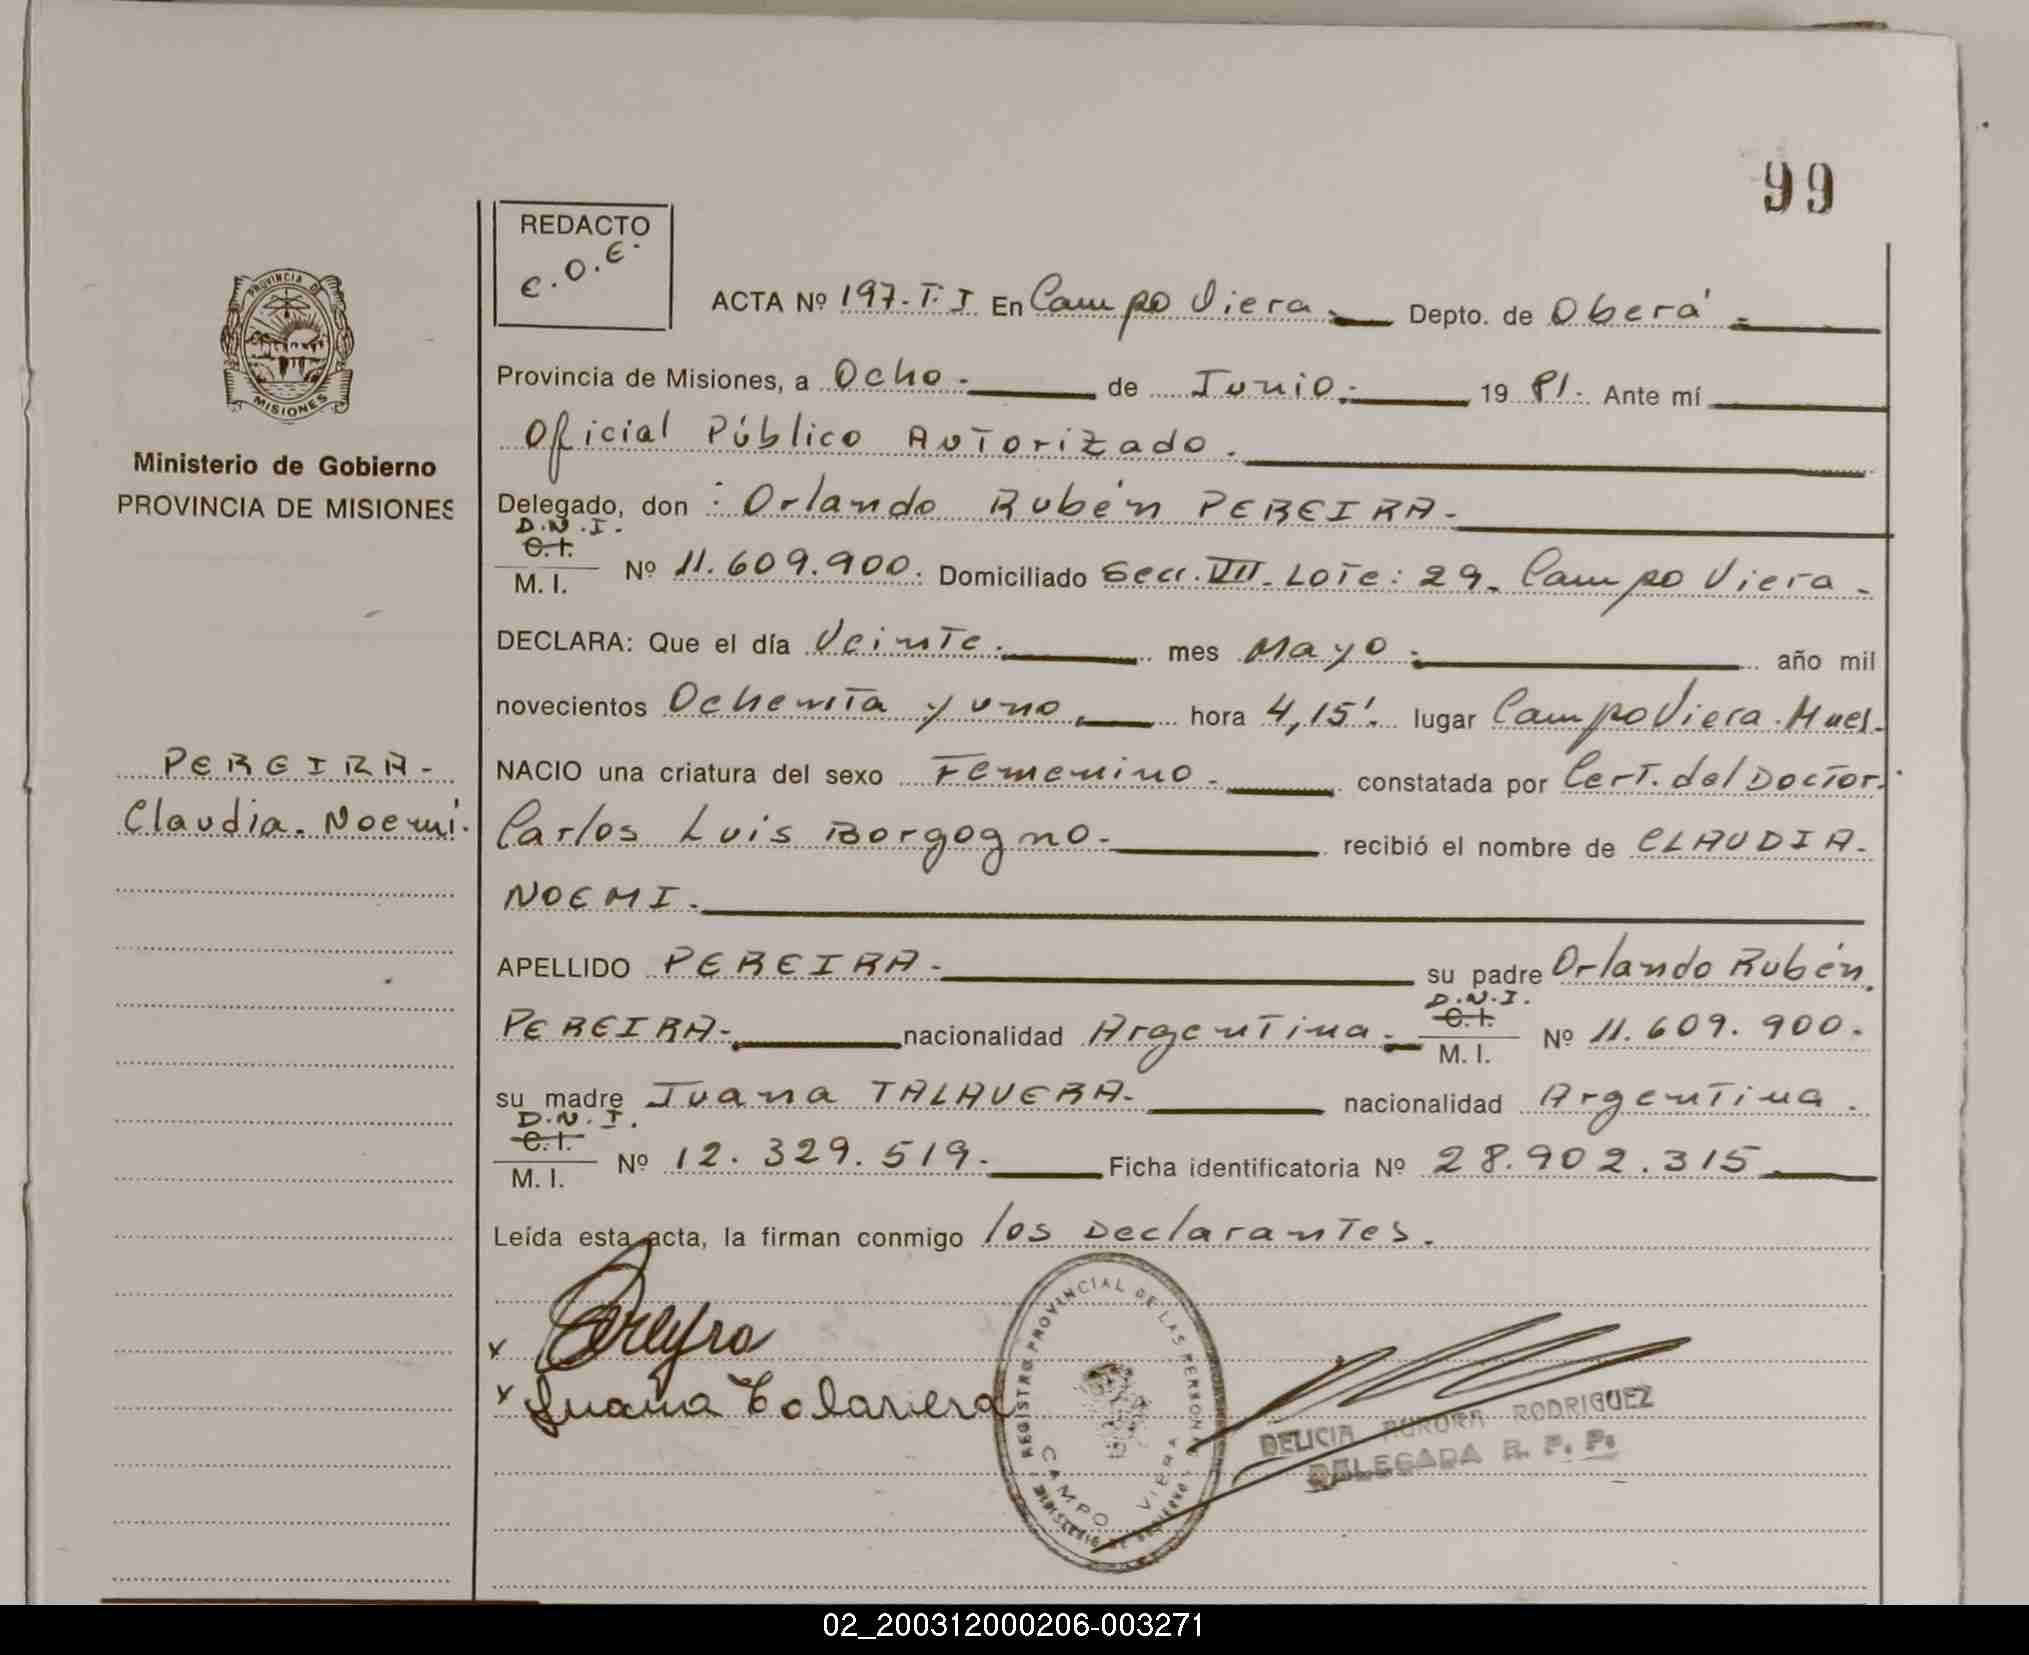 99
REDACTO
C.O.E.
PROVINCIA DE
MISIONES
Ministerio de Gobierno
PROVINCIA DE MISIONES
ACTA Nº 197.T.I En Campo Viera.- Depto. de Oberá.-
Provincia de Misiones, a Ocho.- de Junio.- 19 81.- Ante mí
Oficial Público Autorizado.
Delegado, don : Orlando Rubén PEREIRA.-
D.N.I.
C.I.
M. I. Nº 11.609.900. Domiciliado Secc. VII. Lote: 29. Campo Viera.-
DECLARA: Que el día Veinte.- mes Mayo.- año mil
novecientos Ochenta y uno.- hora 4,15'. lugar Campo Viera. Mnes.-
PEREIRA.-
Claudia. Noemi.
NACIO una criatura del sexo Femenino.- constatada por Cert. del Doctor.
Carlos Luis Borgogno.- recibió el nombre de CLAUDIA.
NOEMI.-
APELLIDO PEREIRA.- su padre Orlando Rubén.
PEREIRA.- nacionalidad Argentina.- D.N.I.
C.I.
M. I. Nº 11.609.900.
su madre Juana TALAVERA.- nacionalidad Argentina.
D.N.I.
C.I.
M. I. Nº 12.329.519.- Ficha identificatoria Nº 28.902.315.-
Leída esta acta, la firman conmigo los Declarantes.
x Pereyra
x Juana Talavera
REGISTRO PROVINCIAL DE LAS PERSONAS
CAMPO VIERA
MINISTERIO DE GOBIERNO
DELICIA AURORA RODRIGUEZ
DELEGADA R. P. P.
02_200312000206-003271